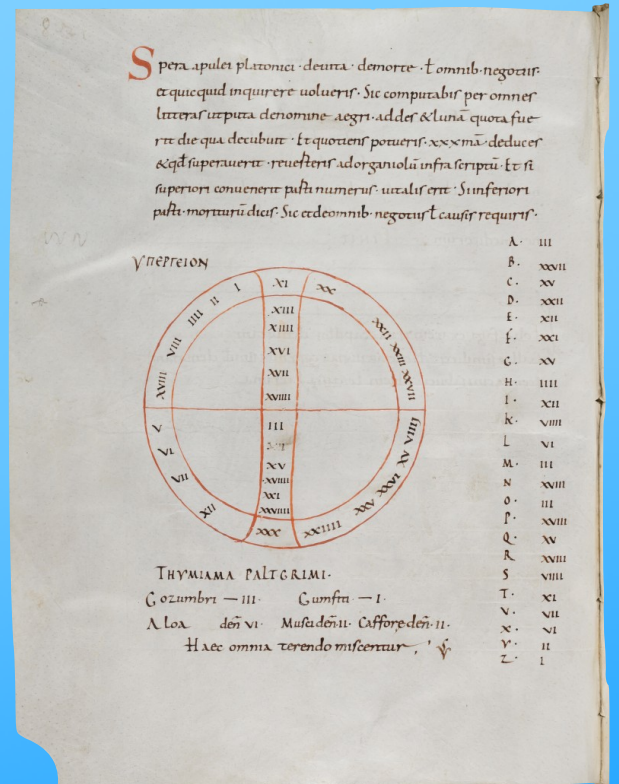 Spera apulei platonici · de uita · demorte · ł omnib · negotiis ·
et quicquid inquirere uolueris · Sic computabis per omnes
litteras utputa denomine aegri · addes & lunā quota fue
rit die qua decubuit · Et quotiens potueris · xxx mā · deduces
& qđ superauerit · reuerteris ad organiolū infra scriptū · Et si
superiori conuenerit parti numerus · uitalis erit · Si inferiori
parti · moriturū dicis · Sic et de omnib · negotiis ł causis requiris ·
ΥΠΕΡΓΕΙΟΝ
I
II
IIII
VIII
XVIII
XI
XIII
XIIII
XVI
XVII
XVIIII
XX
XXII
XXIII
XXVII
V
VI
VII
XII
III
XV
XVIIII
XXI
XXVIIII
XXX
XV
XXVI
XXV
XXIIII
A · III
B · XXVII
C · XV
D · XXII
E · XII
F · XXI
G · XV
H · IIII
I · XII
K · VIIII
L VI
M · III
N XVIII
O · III
P · XVIII
Q · XV
R XVIII
S VIIII
T · XI
V · VII
X · VI
Y · II
Z · I
THYMIAMA PALTGRIMI ·
Gozumbri — III · Gumfta — I ·
Aloa deñ VI · Musci deñ · II · Caffore deñ · II ·
Haec omnia terendo miscentur